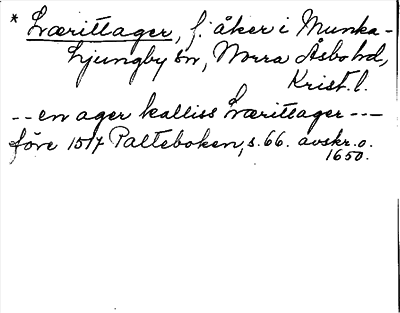 * Sværittager, f. åker i Munka-
Ljungby sn, Norra Åsbo hd,
Krist. l.
-- en ager kalliss Sværittager ---
före 1517 Palteboken, s. 66. avskr. o.
1650.